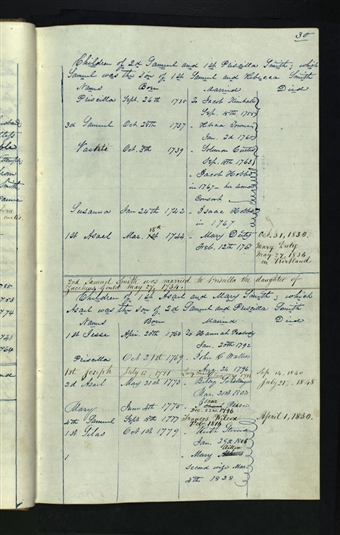 30
Children of 2d Samuel and 1st Priscilla Smith; which
Samuel was the son of 1st Samuel and Rebecca Smith
Names Born Married Died
Priscilla Sept. 26th 1735 To Jacob Kimball
Sep. 15th 1755
3d Samuel Oct. 28th 1737
Jan. 2d 1760
Vashti Oct. 5th 1739 Solomon Curtis
Sep. 11th 1763
Jacob Hobbs
in 1767 his second
Consort
Susanna Jan 24th 1742 Isaac Hobbs
in 1767
1st Asael Mar. 1744 Mary Duty Oct. 31, 1830.
Feb. 12th 1767 Mary Duty
May 27, 1836
in Kirtland
2nd Samuel Smith was married to Priscilla the daughter of
Zaccheus Gould May 27, 1734.
Children of 1st Asael and Mary Smith; which
Asael was the son of 2d Samuel and Priscilla Smith
Names Born Married Died
1st Jesse April 20th 1768 To Hannah Peabody
Jan. 20th 1792
Priscilla Oct 21st 1769 John C Waller
Aug. 24 1796
1st Joseph July 12, 1771 Sep 14, 1840
3d Asael May 21st 1773 Betsy Schellenger July 21, 1848
Mar. 21st 1802
Mary June 4th 1775 Isaac Pierce
Dec. 22d 1796
4th Samuel Sept 15th 1777 Frances Wilcox April 1, 1830.
Feby 1816
1st Silas Oct 1st 1779 Ruth Stevens
Jan. 29d 1806
1 Mary Aikens
second wife Mar
4th 1828